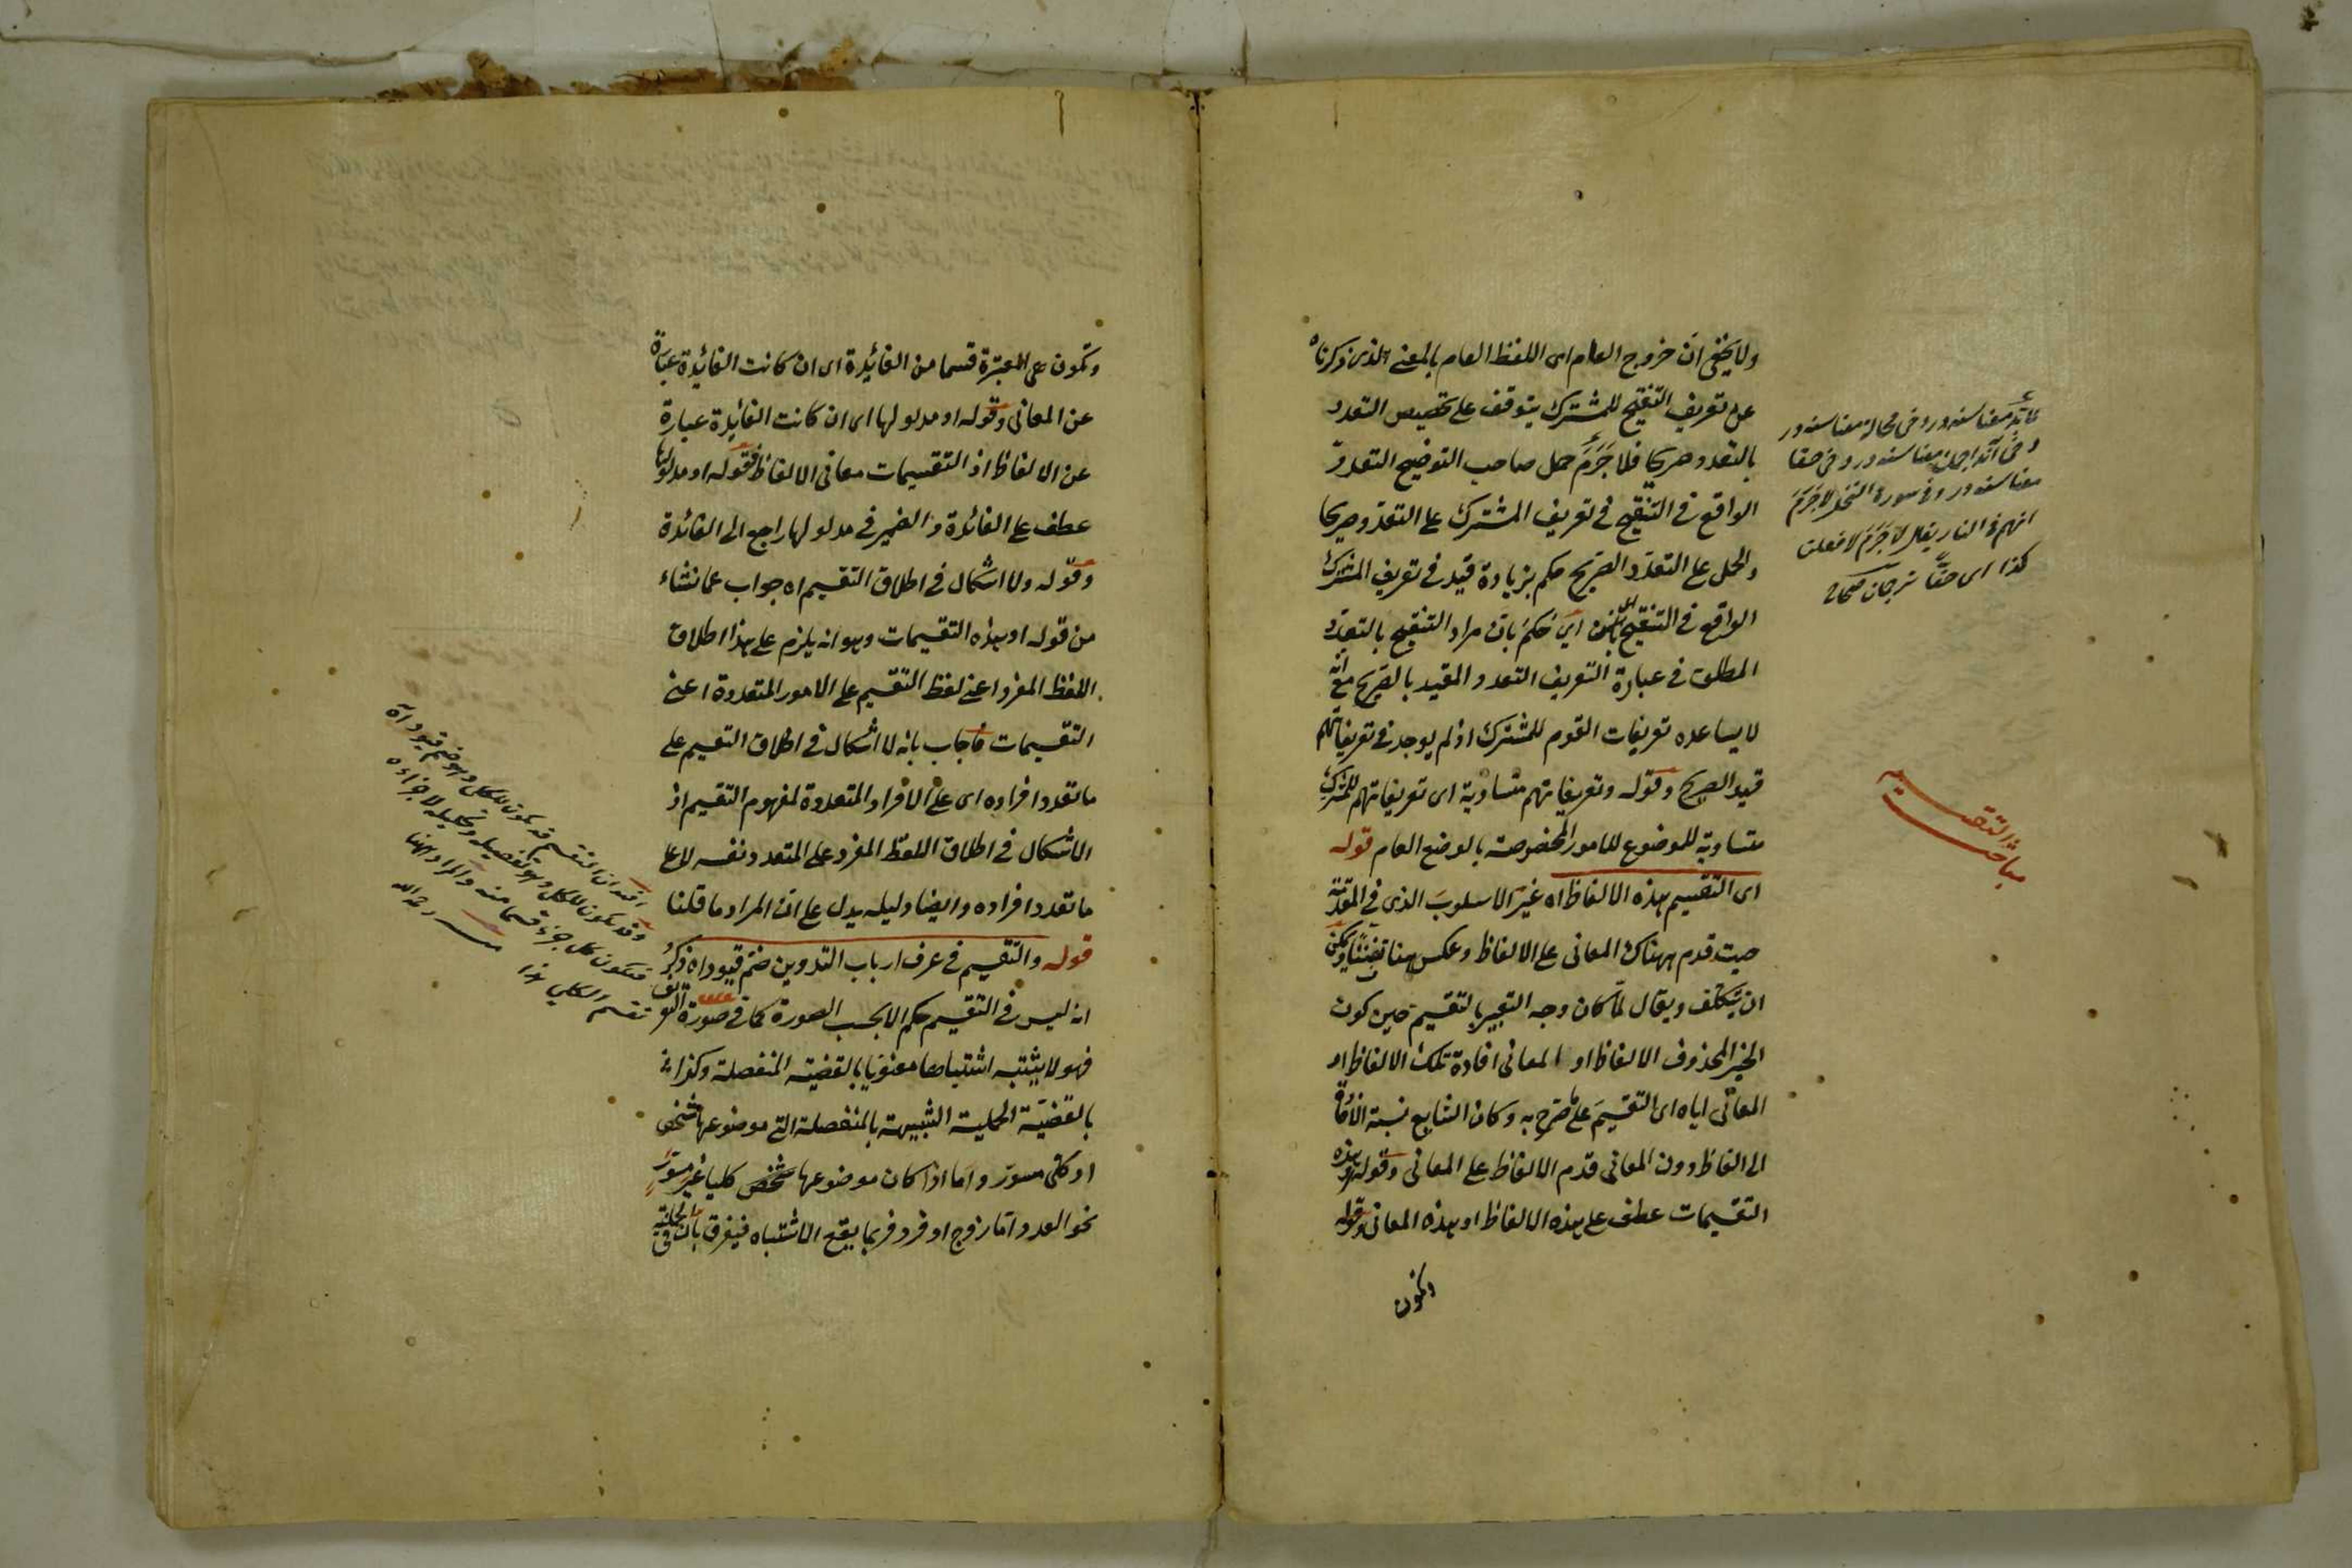 ولا يخفى ان خروج العام اى اللفظ العام بالمعنى الذى ذكرناه
عن تعريف التنقيح للمشترك يتوقف على تخصيص التعدد
بالتعدد صريحا فلا جَرَمَ حمل صاحب التوضيح التعدد
الواقع فى التنقيح فى تعريف المشترك على التعدد صريحا
والحمل على التعدد الصريح حكم بزيادة قيد فى تعريف المشترك
الواقع فى التنقيح اى حكم بان مراد التنقيح بالتعدد
المطلق فى عبارة التعريف التعدد المقيد بالصريح مع انه
لا يساعده تعريفات القوم للمشترك اذ لم يوجد فى تعريفاتهم
قيد الصريح وقوله وتعريفاتهم متساوية اى تعريفاتهم للمشترك
متساوية للموضوع للامور المخصوصة بالوضع العام قوله
اى التقسيم هذه الالفاظ اه غيّر الاسلوبَ الذى فى المقدمة
حيث قدم ههناك المعانى على الالفاظ وعكس هنا تفننا ويمكن
ان يتكلف ويقال لمّا كان وجه التعبير بالتقسيم حين كون
الخبر المحذوف الالفاظ او المعانى افادة تلك الالفاظ او
المعانى اياه اى التقسيمَ على ما صرح به وكان الشايع نسبة الافادة
الى الفاظ دون المعانى قدم الالفاظ على المعانى وقوله او هذه
التقسيمات عطف على هذه الالفاظ او هذه المعانى وقوله
وتكون
لا جَرَمَ
انهم فى النار يقال لا جَرَمَ لافعلن
كذا اى حقّا ترجمان صحاح
مباحث التقسيم
وتكون على المعبرة قسما من الفائدة اى ان كانت الفائدة عبارة
عن المعانى وقوله او مدلولها اى ان كانت الفائدة عبارة
عن الالفاظ اذ التقسيمات معانى الالفاظ فقوله او مدلولها
عطف على الفائدة و الضمير فى مدلولها راجع الى الفائدة
وقوله ولا اشكال فى اطلاق التقسيم اه جواب عما نشاء
من قوله او هذه التقسيمات وهو انه يلزم على هذا اطلاق
اللفظ المفرد اعنى لفظ التقسيم على الامور المتعددة اعنى
التقسيمات فاجاب بانه لا اشكال فى اطلاق التقسيم على
ما تعدد افراده اى على الافراد المتعددة لمفهوم التقسيم اذ
الاشكال فى اطلاق اللفظ المفرد على المتعدد نفسه لا على
ما تعدد افراده وايضا دليله يدل على ان المراد ما قلنا
قوله والتقسيم فى عرف ارباب التدوين ضم قيود اه ذكر
انه ليس فى التقسيم حكم الا بحسب الصورة كما فى صورة التعريف
فهو لا يشتبه اشتباها معنويا بالقضية المنفصلة وكذا
بالقضيّة الحملية الشبيهة بالمنفصلة التى موضوعها شخص
او كلى مسوّر واما اذا كان موضوعها شخص كليا غير مسوّر
نحو العدد اما زوج او فرد فربما يقع الاشتباه فيفرق بان الحملية
ان التقسيم قد يكون للكلى وهو ضم قيود اه
وقد يكون للكل وهو تفصيله وتحليله لاجزاءه
فيكون كل جزء قسما منه والمراد ههنا
تقسيم الكلى هذا